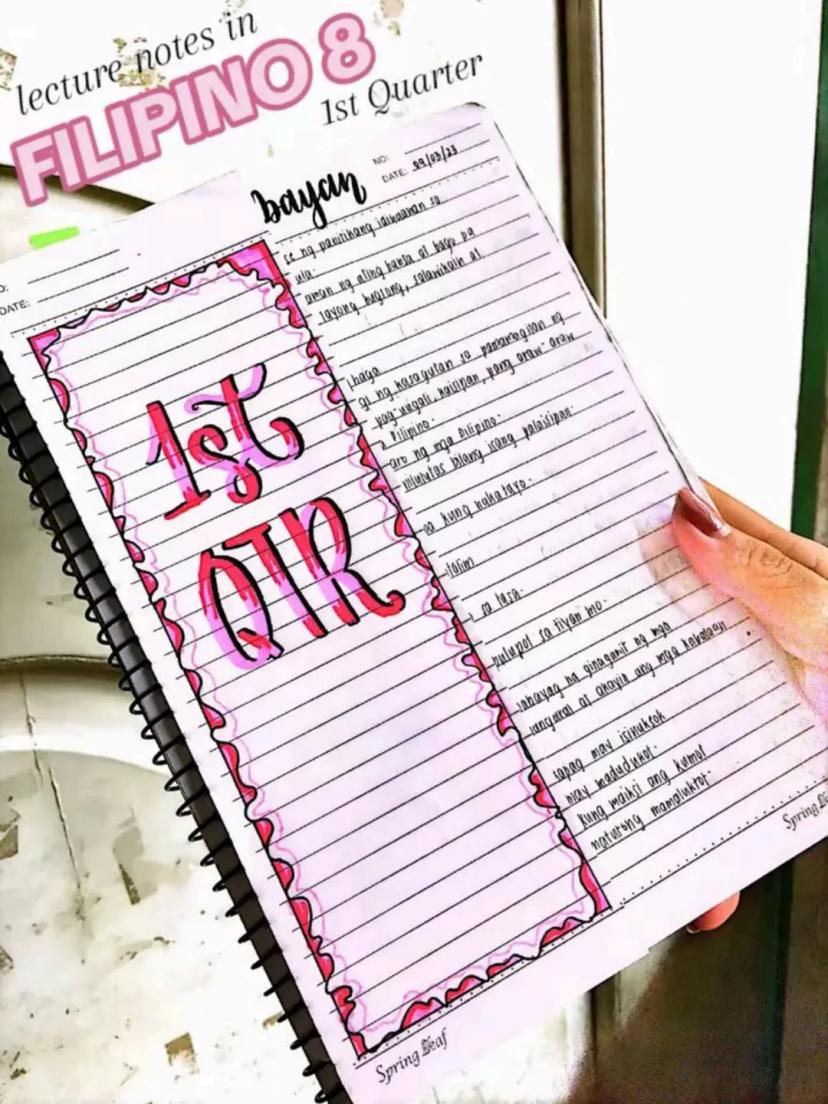 lecture notes in
FILIPINO 8
1st Quarter
bayan
NO:
DATE: 09/03/23
se ng panitikang idinaawan sa
ula.
aman ng ating bansa at bago pa
tayong bugtong, salawikain at
DATE:
1st
QTR
gi ng kasagutan sa pamamagitan ng
pag-uugali, kaisipan, pang araw-araw
Pilipino.
aro ng mga Pilipino.
nilulutas bilang isang palaisipan.
oo kung nakatayo.
talim
sa lasa.
pulupot sa tiyan mo.
ahayag na ginagamit ng mga
angaral at akayin ang mga kabataan
sapag may isinuksok
may madudukot.
kung maiksi ang kumot
matutong mamaluktot.
Spring Leaf
Spring